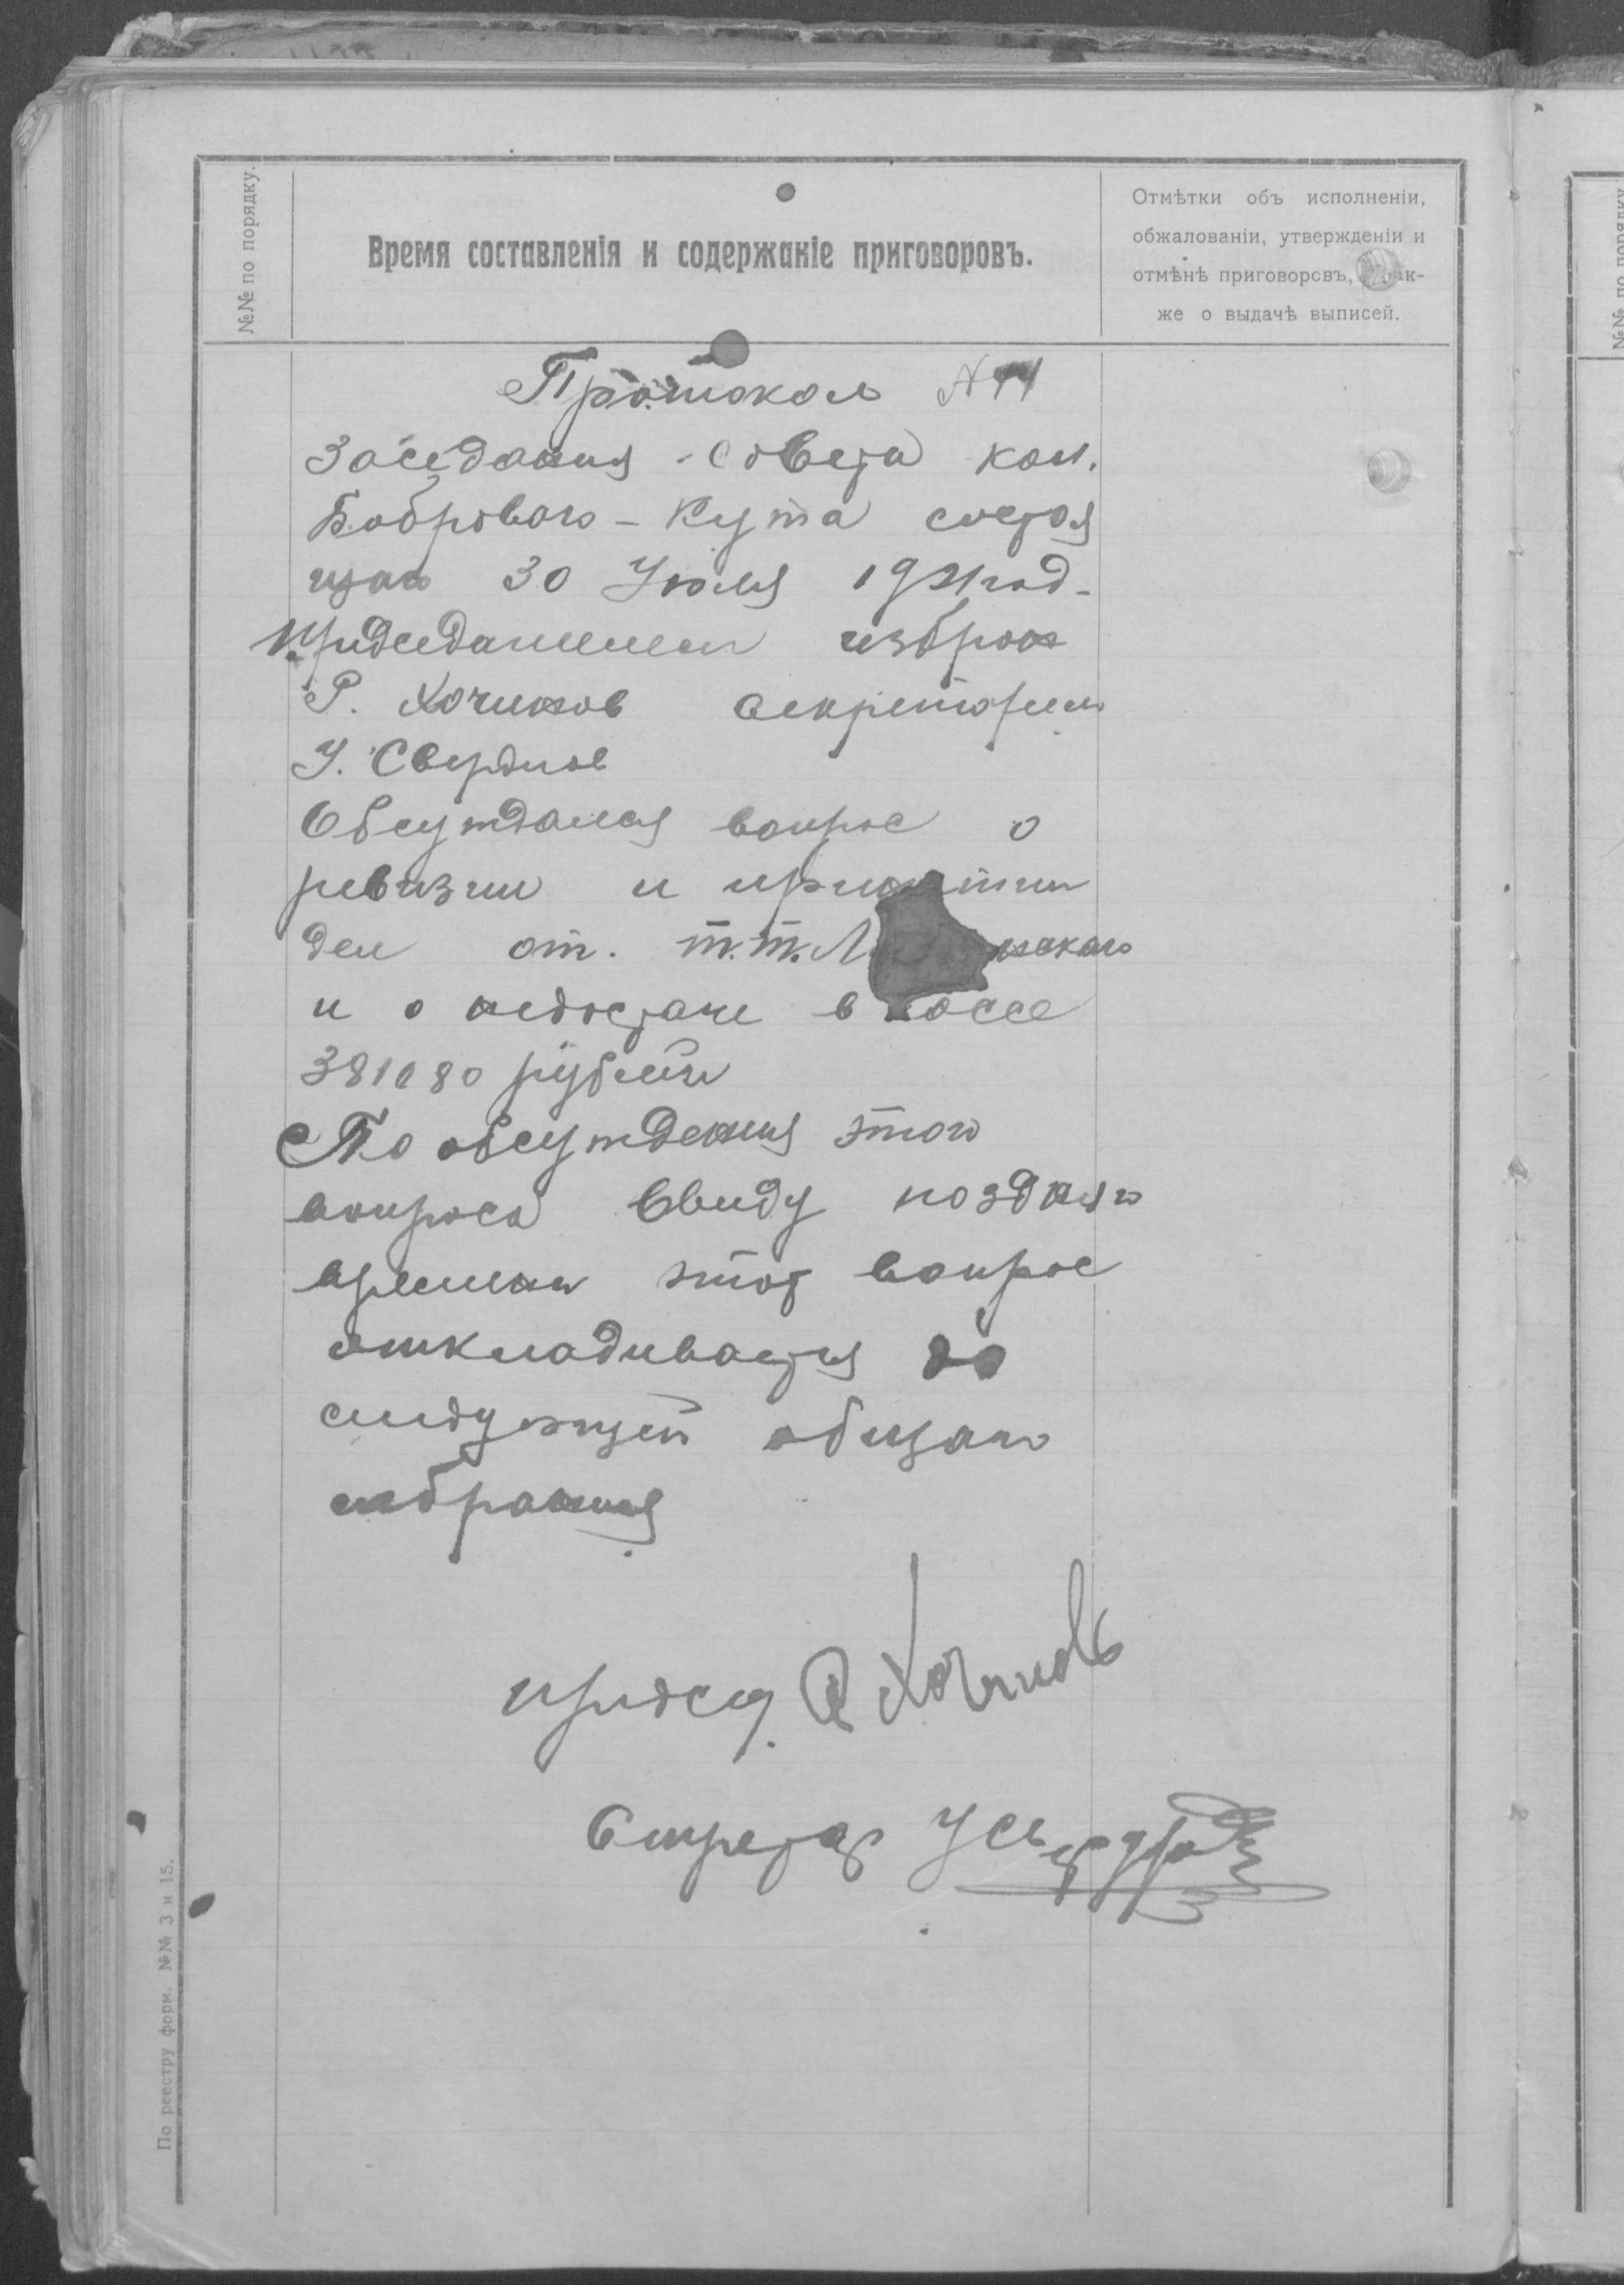 №№ по порядку.
Время составленія и содержаніе приговоровъ.
Отмѣтки объ исполненіи,
обжалованіи, утвержденіи и
отмѣнѣ приговоровъ, так-
же о выдачѣ выписей.
Протокол N
Заседания Совета кол.
Бобрового-Кута состоя
щаго 30 Июля 1921 год-
Придседателем избран
Р. Хочинов секретарем
У. Свердлов
Обсуждался вопрос о
ревизии и принятии
дел от. т.т. Л
и о недостаче в кассе
381080 рублей
По обсуждения этого
вопроса Ввиду поздняго
времени этот вопрос
откладивается до
следующей общаго
собрания
придсед. Р Хочинов
Секретар У
По реестру форм. №№ 3 и 15.
№№ по порядку